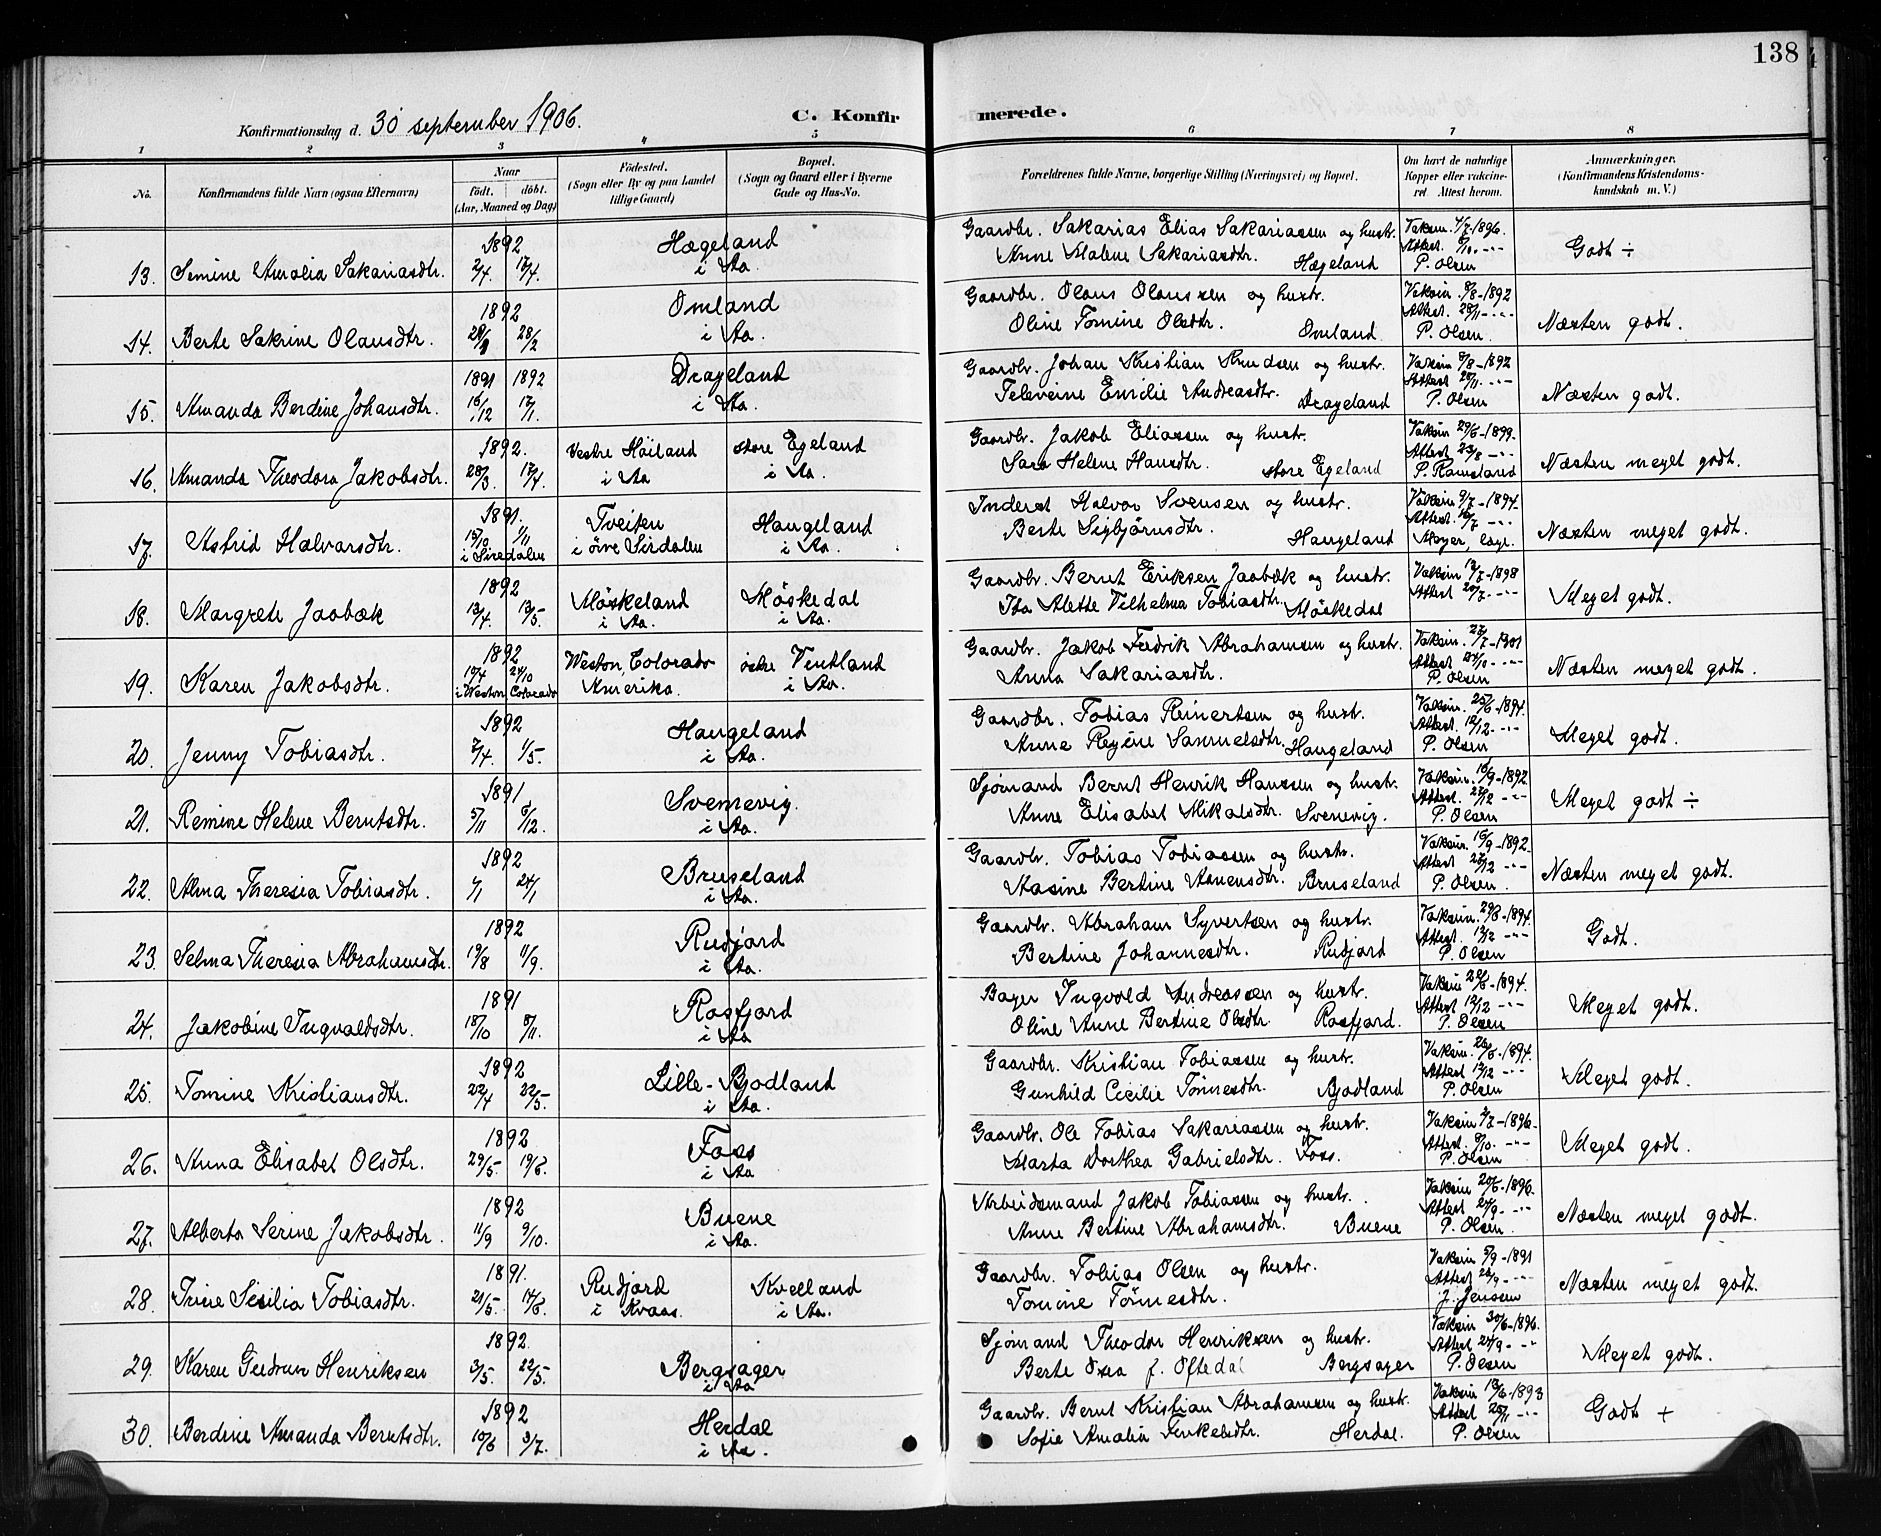 138
Konfirmationsdag d. 30 september 1906.
C. Konfirmerede.
1 2 3 4 5 6 7 8
No.
Konfirmandens fulde Navn (ogsaa Efternavn)
Naar
födt. döbt.
(Aar, Maaned og Dag)
Födested.
(Sogn eller By og paa Landet
tillige Gaard)
Bopæl.
(Sogn og Gaard eller i Byerne
Gade og Hus-No.
Forældrenes fulde Navne, borgerlige Stilling (Næringsvei) og Bopæl.
Om havt de naturlige
Kopper eller vaccine-
ret Attest herom.
Anmærkninger.
(Konfirmandens Kristendoms-
kundskab m. V.)
13. Semine Amalia Sakariasdtr. 1892 2/4. 17/4. Hægeland i Aa.
Gaardbr. Sakarias Elias Sakariassen og hustr.
Anne Malene Sakariasdtr. Hægeland
Vaksin. 4/7-1896.
P. Olsen
Godt ÷
14. Berte Sakrine Olausdtr. 1892 28/2 Omland i Aa.
Gaardbr. Olaus Olaussen og hustr.
Oline Tomine Olsdtr. Omland
Vaksin. 8/8-1892
Attest. 28/11-"-
P. Olsen
Næsten godt.
15. Amanda Berdine Johansdtr. 1891 16/12 1892 17/1. Drageland i Aa.
Gaardbr. Johan Kristian Knudsen og hustr.
Televine Emilie Andreasdtr. Drageland
Vaksin 8/8-1892
Attest 28/11 -"-
P. Olsen
Næsten godt.
16. Amanda Theodora Jakobsdtr. 1892. 28/3. 17/4. Vestre Höiland i Aa store Egeland i Aa.
Gaardbr. Jakob Eliassen og hustr.
Sara Helene Hansdtr. store Egeland
Vaksin 29/6-1899.
Attest. 23/8 -"-
P. Ramsland
Næsten meget godt.
17. Astrid Halvarsdtr. 1891. 15/10 1/11 i Siredalen Tveiten i övre Sirdalen Haugeland i Aa.
Inderst Halvor Svensen og hustr.
Berte Sigbjörnsdtr. Haugeland
Vaksin 9/7-1894.
Attest. 16/7 -"-
Meyer, læge.
Næsten meget godt.
18. Margrete Jaabæk 1892 13/4. 13/5- Möskeland i Aa. Möskedal i Aa.
Gaardbr. Bernt Eriksen Jaabæk og hustr.
Ita Alette Vilhelma Tobiasdtr. Möskedal
Vaksin 12/7-1898
Attest 20/7 -"-
Meget godt.
19. Karen Jakobsdtr. 1892 17/4 24/10 i Weston Colorado Weston, Colorado Amerika. östre Ventland i Aa.
Gaardbr. Jakob Fredrik Abrahamsen og hustr.
Anna Sakariasdtr.
Vaksin. 27/7-1901
Attest 24/10 -"-
P. Olsen
Næsten meget godt.
20. Jenny Tobiasdtr. 1892 2/4. 1/5- Haugeland i Aa.
Gaardbr. Tobias Reinertsen og hustr.
Anne Regine Samuelsdtr. Haugeland
Vaksin. 25/6-1894.
Attest. 12/12. -"-
P. Olsen
Meget godt.
21. Remine Helene Berntsdtr. 1891 5/11 6/12. Svennevig. i Aa.
Sjömand Bernt Henrik Hanssen og hustr.
Anne Elisabet Mikalsdtr. Svenevig.
Vaksin. 16/9-1892
Attest. 27/12 -"-
P. Olsen
Meget godt ÷
22. Alma Theresia Tobiasdtr. 1892 1/1 24/1 Bruseland i Aa.
Gaardbr. Tobias Tobiassen og hustr.
Aasine Bertine Asnensdtr. Bruseland
Vaksin. 16/9-1892.
Attest 27/12 -"-
P. Olsen.
Næsten meget godt.
23. Selma Theresia Abrahamsdtr. 1892 19/8 11/9. Rudjord i Aa.
Gaardbr. Abraham Syvertsen og hustr.
Bertine Johannesdtr. Rudjord
Vaksin. 29/6-1894.
Attest. 12/12 -"-
P. Olsen
Godt.
24. Jakobine Ingvaldsdtr. 1891 18/10 8/11. Rosfjord i Aa
Bager Ingvold Andreassen og hustr.
Oline Anne Bertine Olsdtr. Rosfjord.
Vaksin 29/6-1894.
Attest 12/12 -"-
P. Olsen
Meget godt.
25. Tomine Kristiansdtr. 1892 22/4 22/5- Lille-Bjodland i Aa.
Gaardbr. Kristian Tobiassen og hustr.
Gunhild Cecilie Tönnesdtr. Bjodland
Vaksin. 26/6-1894.
Attest 12/12 -"-
P. Olsen
Meget godt.
26. Anna Elisabet Olsdtr. 1892 29/5- 19/6. Foss i Aa.
Gaardbr. Ole Tobias Sakariassen og hustr.
Marta Dorthea Gabrielsdtr. Foss.
Vaksin 2/7-1896.
Attest 8/10. -"-
P. Olsen
Meget godt.
27. Alberta Serine Jakobsdtr. 1892 11/9 9/10. Buene i Aa.
Arbeidsmand Jakob Tobiassen og hustr.
Anne Bertine Abrahamsdtr. Buene
Vaksin 20/6-1896.
Attest 24/9. -"-
P. Olsen
Næsten meget godt.
28. Trine Sesilia Tobiasdtr. 1891. 21/5- 14/6. Rudjord i Kvaas. Kvelland i Aa.
Gaardbr. Tobias Olsen og hustr.
Tomine Tönnesdtr.
Vaksin 5/9-1891
Attest 26/9 -"-
J. Jensen
Næsten meget godt.
29. Karen Gudrun Henriksen 1892. 3/5- 22/5- Bergsager i Aa
Sjömand Theodor Henriksen og hustr.
Berte Oxea f. Oftedal Bergsager
Vaksin 30/6-1896.
Attest 24/9- -"-
P. Olsen
Meget godt.
30. Berdine Amanda Berntsdtr. 1892 10/6 3/7. Herdal i Aa.
Gaardbr. Bernt Kristian Abrahamsen og hustr.
Sofie Amalia Tenkelsdtr. Herdal.
Vaksin 13/6-1893
Attest 25/11 -"-
P. Olsen
Godt +